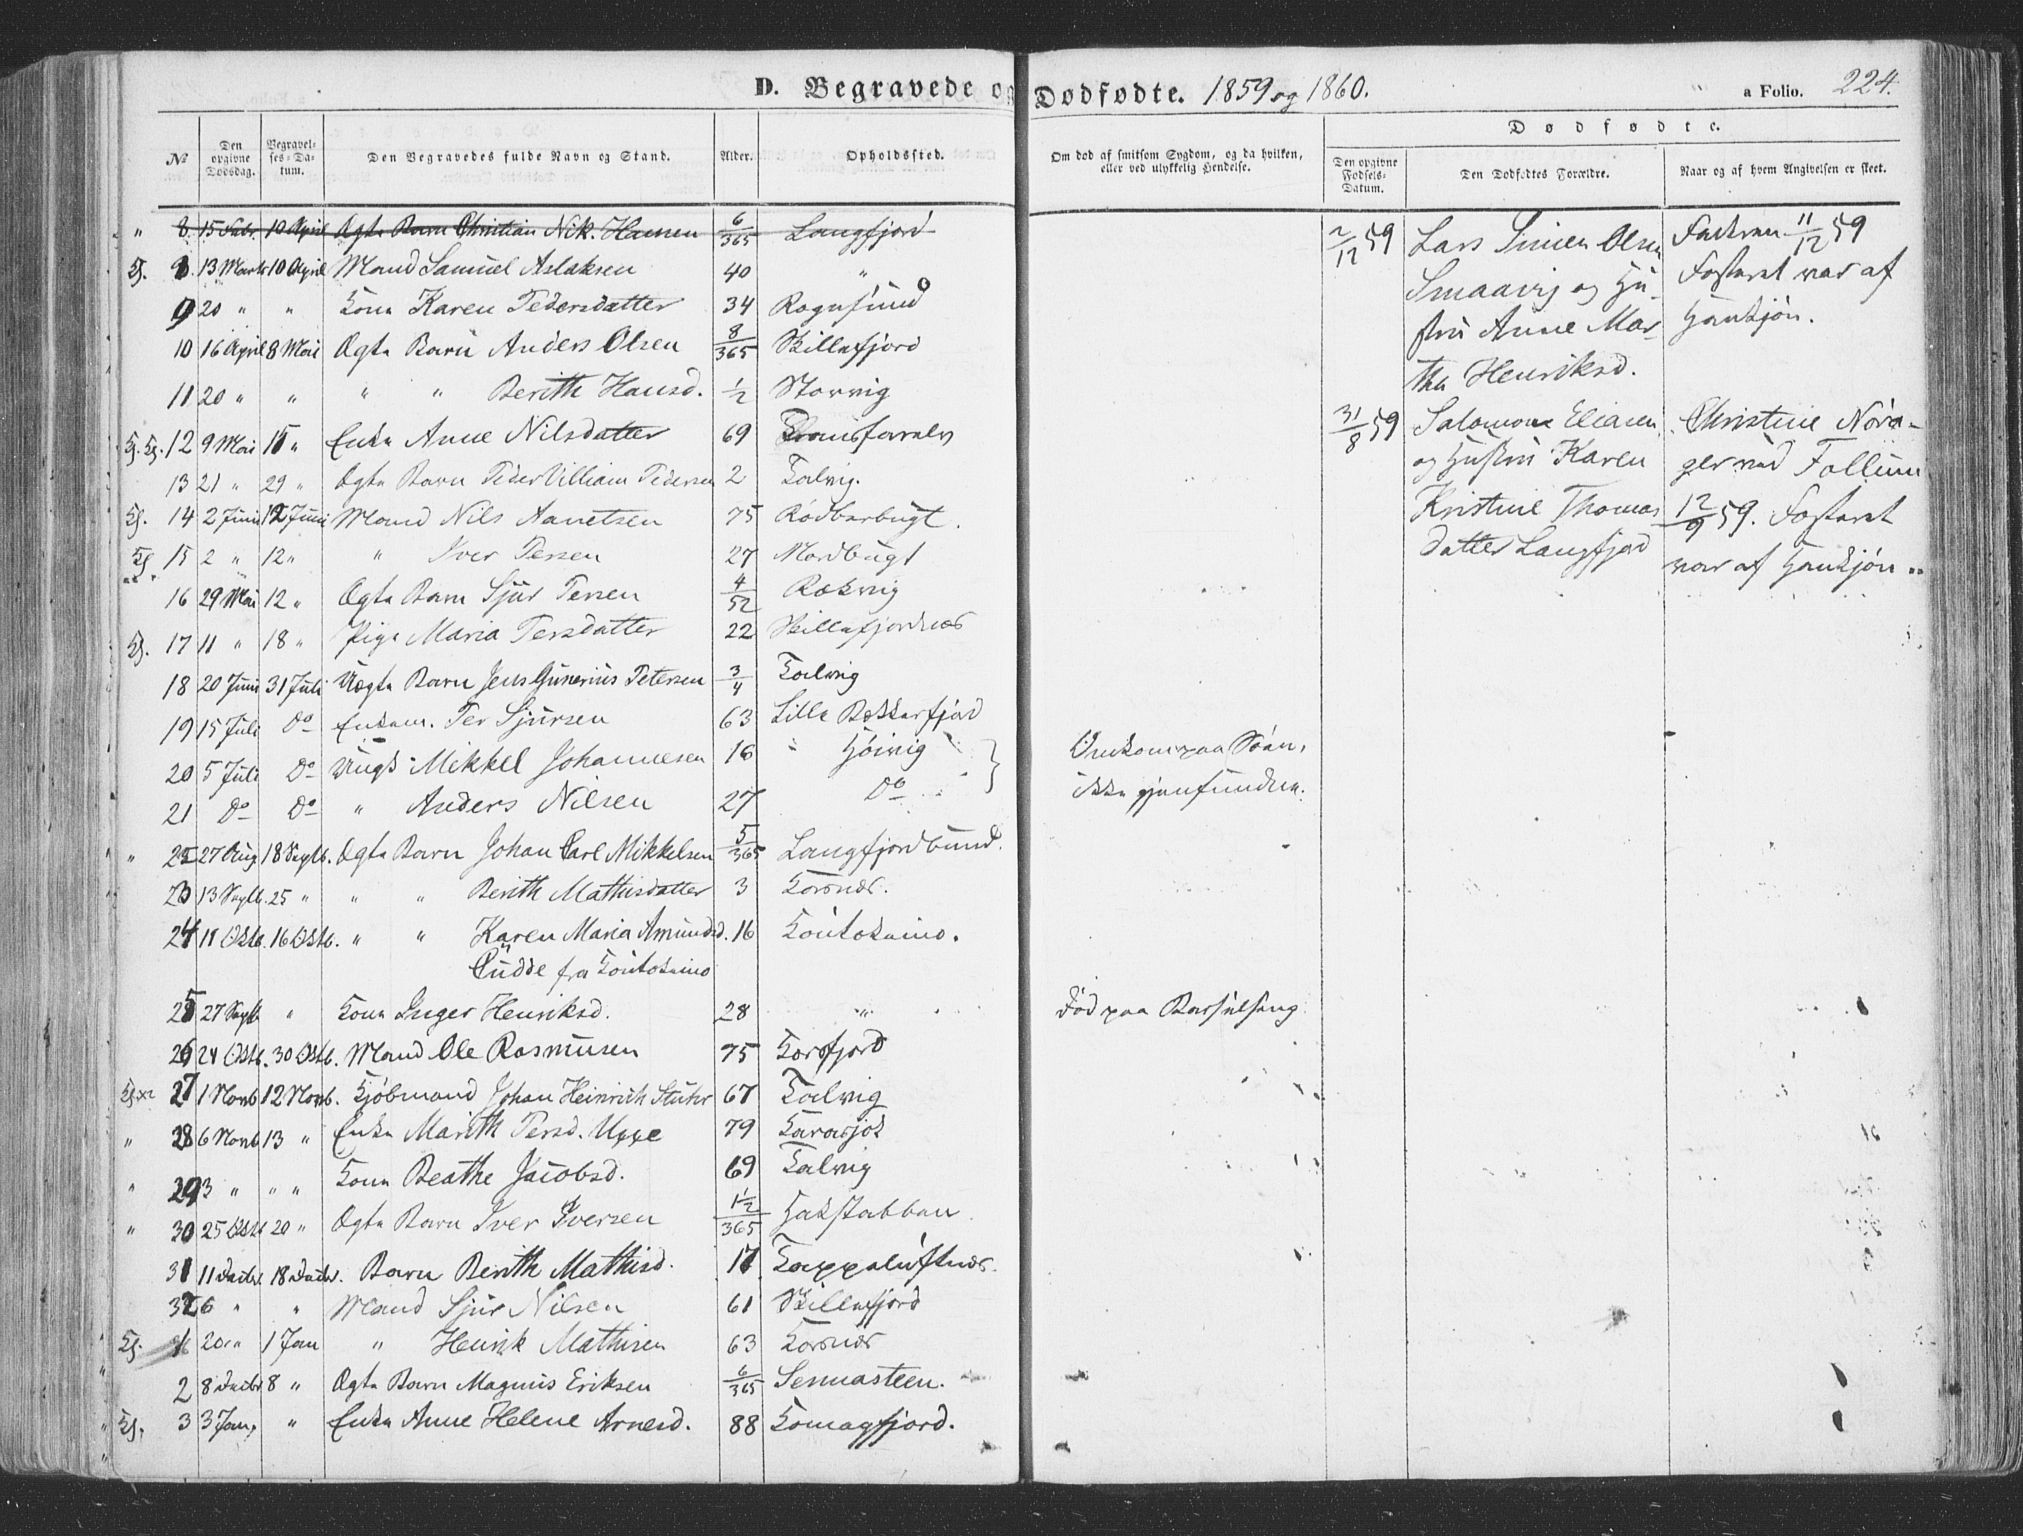 D. Begravede og Dødfødte. 1859 og 1860. a Folio. 224.
№ Den opgivne Dødsdag. Begravelses-Datum. Den Begravedes fulde Navn og Stand. Alder. Opholdssted. Om død af smitsom Sygdom, og da hvilken, eller ved ulykkelig Hendelse. Dødfødte. Den opgivne Fødsels-Datum. Den Dødfødtes Forældre. Naar og af hvem Angivelsen er skeet.
" 8. 15 Febr. 10 April Ægte Barn Christian Nik. Hansen 6/365 Langfjord
8. 13 Marts 10 April Mand Samuel Aslaksen 40 "
9 20 " " Kone Karen Pedersdatter 34 Rognsund
10 16 April 8 Mai Ægte Barn Anders Olsen 8/365 Skillefjord
11 20 " " " " Berith Hansd. 1/2 Storvig
12 9 Mai 15 " Enke Anne Nilsdatter 69
13 21 " 29 " Ægte Barn Peder Villiam Pedersen 2 Talvig.
14 2 Juni 12 Juni Mand Nils Aanetsen 75 Rødberbugt.
15 2 " 12 " " Iver Persen 27 Mordbugt
16 29 Mai 12 " Ægte Barn Sjur Persen 4/52 Rækvig
17 11 " 18 " Pige Maria Persdatter 22 Skillefjordnes
18 20 Juni 31 Juli Uægte Barn Jens Gunerius Petersen 3/4 Talvig
19 15 Juli Do Enkem. Per Sjursen 63 Lille Bekkerfjord
20 5 Juli Do Ungk. Mikkel Johannesen 16 " Højvig } Omkom paa Søen,
21 Do Do " Anders Nilsen 27 Do ikke gjenfunden.
" 22 27 Aug. 18 Septb. Ægte Barn Johan Carl Mikkelsen 5/365 Langfjordbund.
23 13 Septb. 25 " " " Berith Mathisdatter 3 Korsnes.
24 11 Oktb. 16 Oktb. " " Karen Maria Amundsd. 16 Koutokeino.
Budde fra Koutokeino
25 27 Septb " Kone Inger Henriksd. 28 " Død paa Barselseng
26 24 Oktb. 30 Oktb. Mand Ole Rasmusen 75 Korsfjord
27 1 Novb 12 Novb. Kjøbmand Johan Heinrich 67 Talvig
" 28 6 Novb 13 " Enke Marith Persd. Uppe 79 Karasjok
" 29 3 " " " Kone Beathe Jacobsd. 69 Talvig
" 30 25 Oktb 20 " Ægte Barn Iver Iversen 1 1/2/365 Hakstabben
31 11 Decbr. 18 Decbr. Barn Berith Mathisd. 17 Kappeluftnes.
32 6 " " Mand Sjur Nilsen 61 Skillefjord
1 20 " 1 Jan " Henrik Mathisen 63 Korsnes
2 8 Decbr 8 " Ægte Barn Magnus Eriksen 6/365 Sennasteen.
3 3 Jan, " Enke Anne Helene Arnesd. 88 Komagfjord.
2/12 59 Lars Simen Olsen
Smaavig og Hu-
stru Anne Mar-
tha Henriksd.
Faderen 11/12 59
Fosteret var af
Hankjøn.
31/8 59 Salomon Eliasen
og Hustru Karen
Kristine Thomas
datter Langfjord
Christine Nova-
ger ved Follum
12/9 59. Fosteret
var af Hankjøn